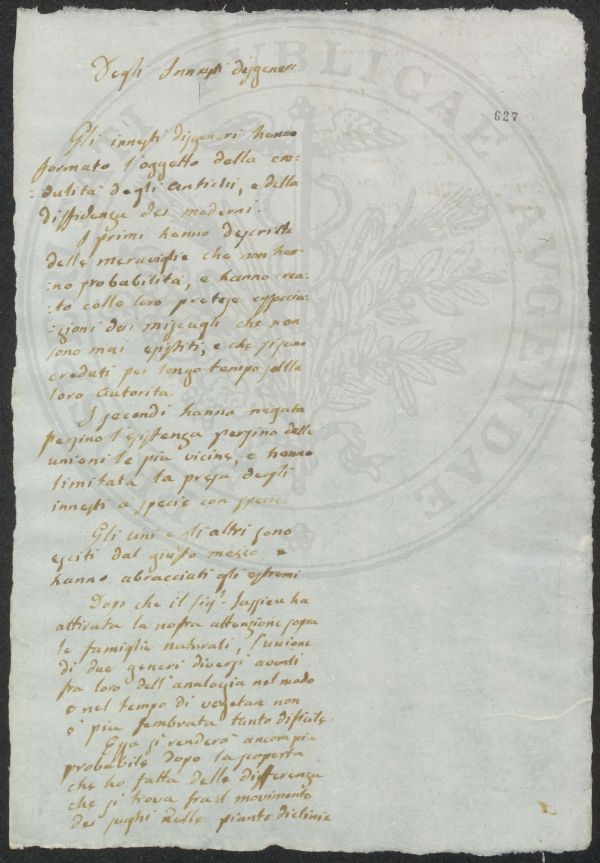 Degli Innesti disgeneri
627
Gli innesti disgeneri hanno
formato l'oggetto della cre=
=dulità degli antichi, e della
diffidenza dei moderni.
I primi hanno descritte
delle meraviglie che non han=
=no probabilità, e hanno crea=
=to colle loro pretese associa=
=zioni dei miscugli che non
sono mai esistiti, e che si sono
creduti per longo tempo sulla
loro autorità.
I secondi hanno negata
persino l'esistenza persino delle
unioni le più vicine, e hanno
limitata la presa degli
innesti a specie con specie.
Gli uni e gli altri sono
esciti dal giusto mezzo, e
hanno abracciati gli estremi
Dopo che il Sig.r Jussieu ha
attirata la nostra attenzione sopra
le famiglie naturali, l'unione
di due generi diversi aventi
fra loro dell'analogia nel modo
e nel tempo di vegetare non
è più sembrata tanto difficile.
Essa si renderà ancora più
probabile dopo la scoperta
che ho fatta della differenza
che si trova fra il movimento
dei sughi nelle piante diclinie
REI PUBLICAE AUGENDAE